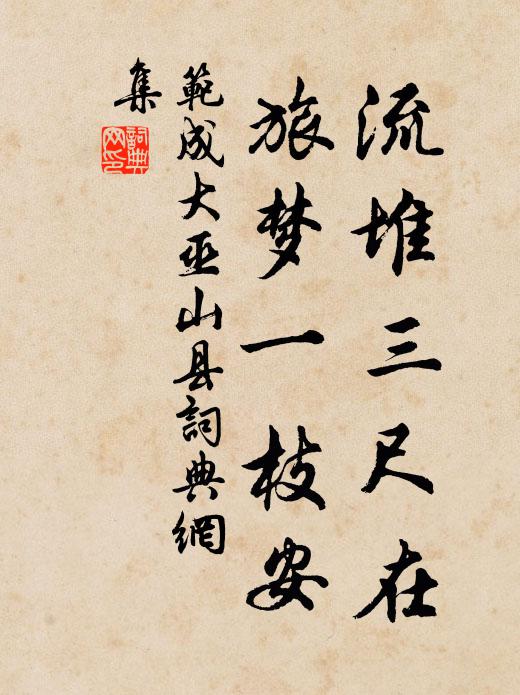 流堆三尺在
旅梦一枝安
範成大巫山县詞典網
集
詞典
网印